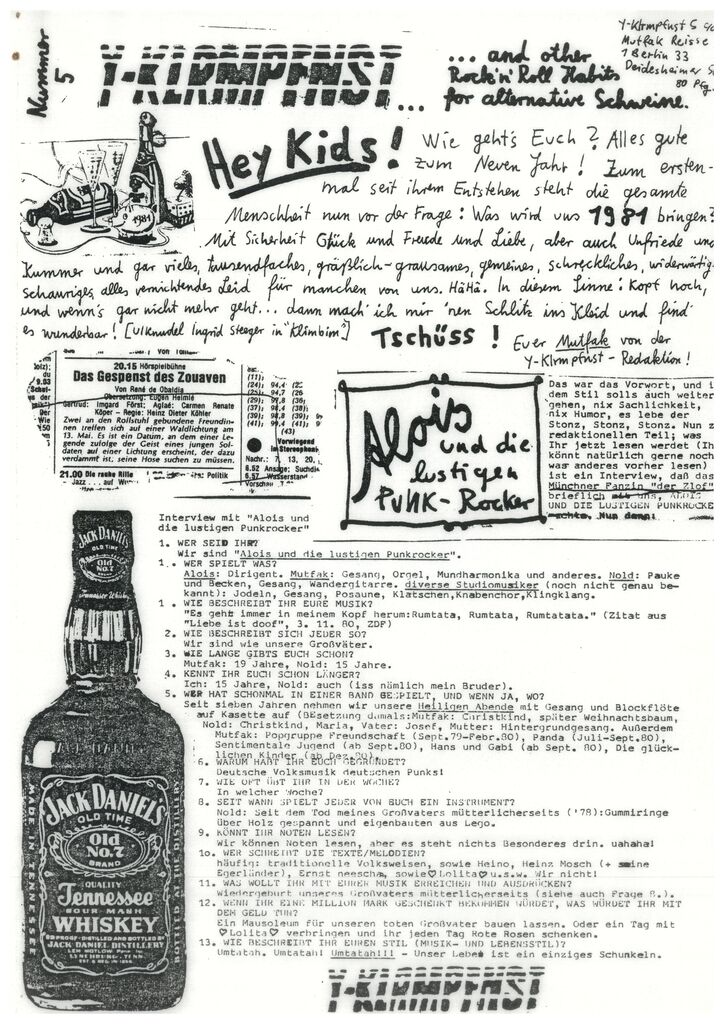 Nummer 5
Y-KLRMPFNST ...
... and other
Rock'n'Roll Habits
for alternative Schweine.
Y-Klrmpfnst 5 c/o
Mutfak Reisse
1 Berlin 33
Deidesheimer S
80 Pfg.
Hey Kids!
Wie geht's Euch? Alles gute
zum Neuen Jahr! Zum ersten-
mal seit ihrem Entstehen steht die gesamte
Menschheit nun vor der Frage: Was wird uns 1981 bringen?
Mit Sicherheit Glück und Freude und Liebe, aber auch Unfriede und
Kummer und gar vieles, tausendfaches, gräßlich-grausames, gemeines, schreckliches, widerwärtig
schauriges, alles vernichtendes Leid für manchen von uns. HäHä. In diesem Sinne: Kopf hoch,
und wenn's gar nicht mehr geht... dann mach' ich mir 'nen Schlitz ins Kleid und find'
es wunderbar! [Ulknudel Ingrid Steeger in "Klimbim"]
Tschüss!
Euer Mutfak von der
Y-Klrmpfnst-Redaktion!
1981
20.15 Hörspielbühne
Das Gespenst des Zouaven
Von René de Obaldia
Übersetzung: Eugen Helmlé
Gertrud: Irmgard Först; Aglaé: Carmen Renate
Köper - Regie: Heinz Dieter Köhler
Zwei an den Rollstuhl gebundene Freundin-
nen treffen sich auf einer Waldlichtung am
13. Mai. Es ist ein Datum, an dem einer Le-
gende zufolge der Geist eines jungen Sol-
daten auf einer Lichtung erscheint, der dazu
verdammt ist, seine Hose suchen zu müssen.
21.00 Die rauhe Rille
Alois
und die
lustigen
PUNK-Rocker
Das war das Vorwort, und i
dem Stil solls auch weiter
gehen, nix Sachlichkeit,
nix Humor, es lebe der
Stonz, Stonz, Stonz. Nun z
redaktionellen Teil; was
Ihr jetzt lesen werdet (Ih
könnt natürlich gerne noch
was anderes vorher lesen)
ist ein Interview, daß das
Münchner Fanzin "der Zlof"
brieflich mit uns, ALOIS
UND DIE LUSTIGEN PUNKROCKE
machte. Nun denn!
Interview mit "Alois und
die lustigen Punkrocker"
1. WER SEID IHR?
Wir sind "Alois und die lustigen Punkrocker".
1. WER SPIELT WAS?
Alois: Dirigent. Mutfak: Gesang, Orgel, Mundharmonika und anderes. Nold: Pauke
und Becken, Gesang, Wandergitarre. diverse Studiomusiker (noch nicht genau be-
kannt): Jodeln, Gesang, Posaune, Klatschen, Knabenchor, Klingklang.
1. WIE BESCHREIBT IHR EURE MUSIK?
"Es geht immer in meinem Kopf herum: Rumtata, Rumtata, Rumtatata." (Zitat aus
"Liebe ist doof", 3. 11. 80, ZDF)
2. WIE BESCHREIBT SICH JEDER SO?
Wir sind wie unsere Großväter.
3. WIE LANGE GIBTS EUCH SCHON?
Mutfak: 19 Jahre, Nold: 15 Jahre.
4. KENNT IHR EUCH SCHON LÄNGER?
Ich: 15 Jahre, Nold: auch (iss nämlich mein Bruder).
5. WER HAT SCHONMAL IN EINER BAND GESPIELT, UND WENN JA, WO?
Seit sieben Jahren nehmen wir unsere Heiligen Abende mit Gesang und Blockflöte
auf Kasette auf (Besetzung damals: Mutfak: Christkind, später Weihnachtsbaum,
Nold: Christkind, Maria, Vater: Josef, Mutter: Hintergrundgesang. Außerdem
Mutfak: Popgruppe Freundschaft (Sept.79-Febr.80), Panda (Juli-Sept.80),
Sentimentale Jugend (ab Sept.80), Hans und Gabi (ab Sept. 80), Die glück-
lichen Kinder (ab Dez.80).
6. WARUM HABT IHR EUCH GEGRÜNDET?
Deutsche Volksmusik deutschen Punks!
7. WIE OFT ÜBT IHR IN DER WOCHE?
In welcher Woche?
8. SEIT WANN SPIELT JEDER VON EUCH EIN INSTRUMENT?
Nold: Seit dem Tod meines Großvaters mütterlicherseits ('78): Gummiringe
über Holz gespannt und eigenbauten aus Lego.
9. KÖNNT IHR NOTEN LESEN?
Wir können Noten lesen, aber es steht nichts Besonderes drin. uahaha!
10. WER SCHREIBT DIE TEXTE/MELODIEN?
häufig: traditionelle Volksweisen, sowie Heino, Heinz Mosch (+ seine
Egerländer), Ernst neescha, sowie♡Lolita♡u.s.w. Wir nicht!
11. WAS WOLLT IHR MIT EURER MUSIK ERREICHEN UND AUSDRÜCKEN?
Wiedergeburt unseres Großvaters mütterlicherseits (siehe auch Frage 8.).
12. WENN IHR EINE MILLION MARK GESCHENKT BEKOMMEN WÜRDET, WAS WÜRDET IHR MIT
DEM GELD TUN?
Ein Mausoleum für unseren toten Großvater bauen lassen. Oder ein Tag mit
♡Lolita♡ verbringen und ihr jeden Tag Rote Rosen schenken.
13. WIE BESCHREIBT IHR EUREN STIL (MUSIK- UND LEBENSSTIL)?
Umtatah. Umtatah! Umtatah!!! - Unser Leben ist ein einziges Schunkeln.
Y-KLRMPFNST
JACK DANIEL'S
OLD TIME
Old
No.7
Tennessee Whiskey
JACK DANIEL'S
OLD TIME
Old
No.7
BRAND
QUALITY
Tennessee
SOUR MASH
WHISKEY
90 PROOF - DISTILLED AND BOTTLED BY
JACK DANIEL DISTILLERY
LEM MOTLOW, PROP. INC.
LYNCHBURG, TENN.
MADE IN TENNESSEE